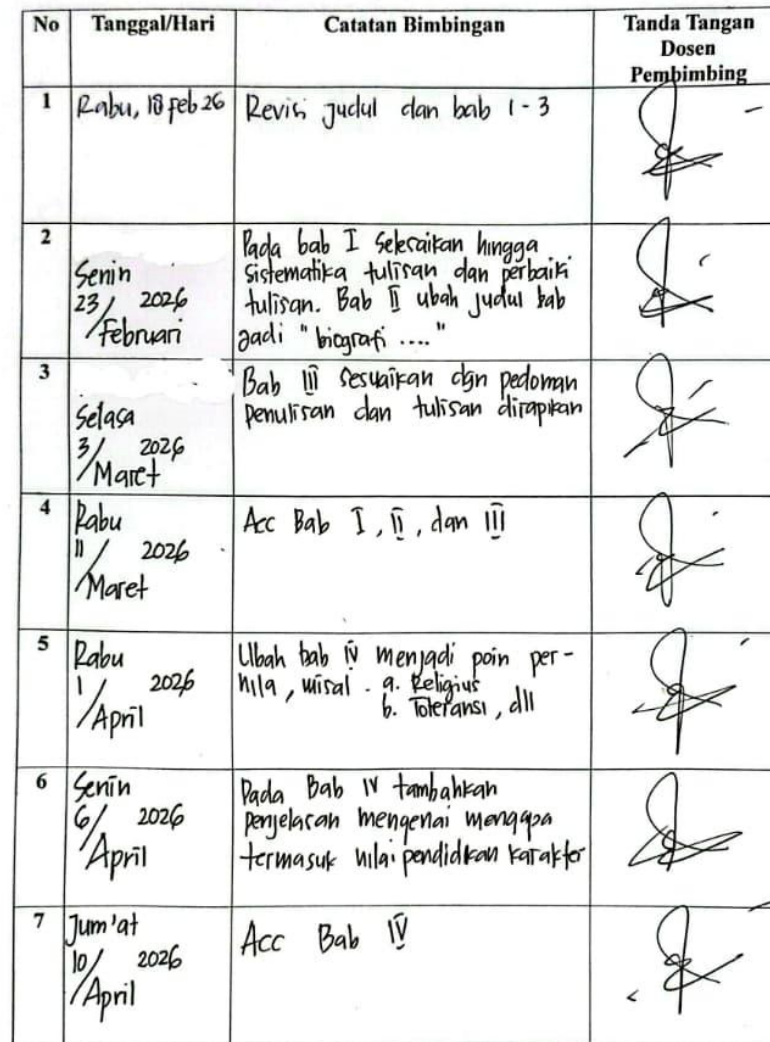 No Tanggal/Hari Catatan Bimbingan Tanda Tangan
Dosen
Pembimbing
1 Rabu, 18 feb 26 Revisi judul dan bab 1 - 3
2
Senin
23/ 2026
Februari
Pada bab I Selesaikan hingga
sistematika tulisan dan perbaiki
tulisan. Bab II ubah judul bab
jadi " biografi .... "
3
Selasa
3/ 2026
Maret
Bab III sesuaikan dgn pedoman
penulisan dan tulisan dirapikan
4
Rabu
11/ 2026
Maret
Acc Bab I, II, dan III
5
Rabu
1/ 2026
April
Ubah bab IV menjadi poin per-
nila, misal . a. Religius
b. Toleransi, dll
6
Senin
6/ 2026
April
Pada Bab IV tambahkan
penjelasan mengenai mengapa
termasuk nilai pendidkan karakter
7
Jum'at
10/ 2026
April
Acc Bab IV